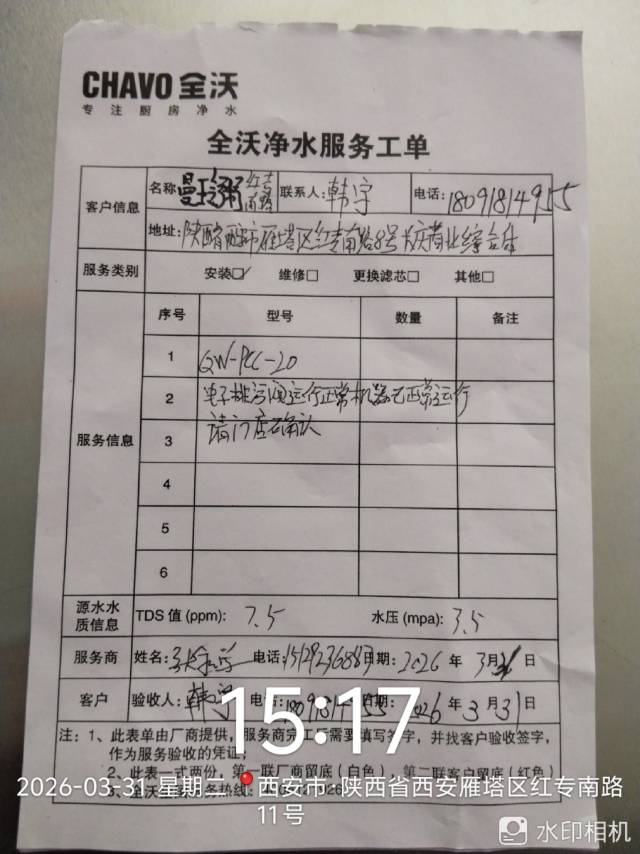 CHAVO 全沃
专注厨房净水
全沃净水服务工单
客户信息 名称 曼玲粥 红专南路 联系人: 韩宇 电话: 18091814955
地址: 陕西省西安市雁塔区红专南路8号长庆商业综合体
服务类别 安装☑ 维修□ 更换滤芯□ 其他□
服务信息 序号 型号 数量 备注
1 QW-PCC-20
2 电子排污阀运行正常机器已正常运行
3 请门店确认
4
5
6
源水水质信息 TDS 值 (ppm): 7.5 水压 (mpa): 3.5
服务商 姓名: 电话: 日期: 2026 年 3月31日
客户 验收人: 韩宇 电话: 日期: 2026 年 3月31日
注: 1、此表单由厂商提供, 服务商完工后需要填写签字, 并找客户验收签字,
作为服务验收的凭证;
2、此表一式两份, 第一联厂商留底 (白色), 第二联客户留底 (红色)
3、全沃全国服务热线:
15:17
2026-03-31 星期 西安市· 陕西省西安雁塔区红专南路
11号
水印相机